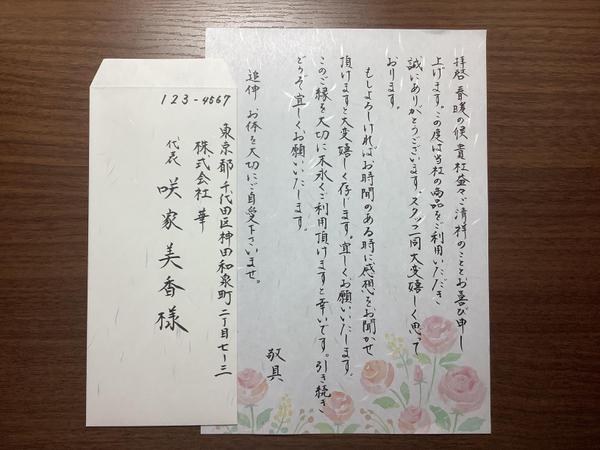 拝啓 春暖の候 貴社益々ご清祥のこととお喜び申し
上げます。この度は当社の商品をご利用いただき
誠にありがとうございます。スタッフ一同大変嬉しく思って
おります。
もしよろしければお時間のある時に感想をお聞かせ
頂けますと大変嬉しく存じます。宜しくお願いいたします。
このご縁を大切に末永くご利用頂けますと幸いです。引き続き
どうぞ宜しくお願いいたします。
敬具
追伸 お体を大切にご自愛下さいませ。
123-4567
東京都千代田区神田和泉町二丁目七-三
株式会社 華
代表 咲家美香様